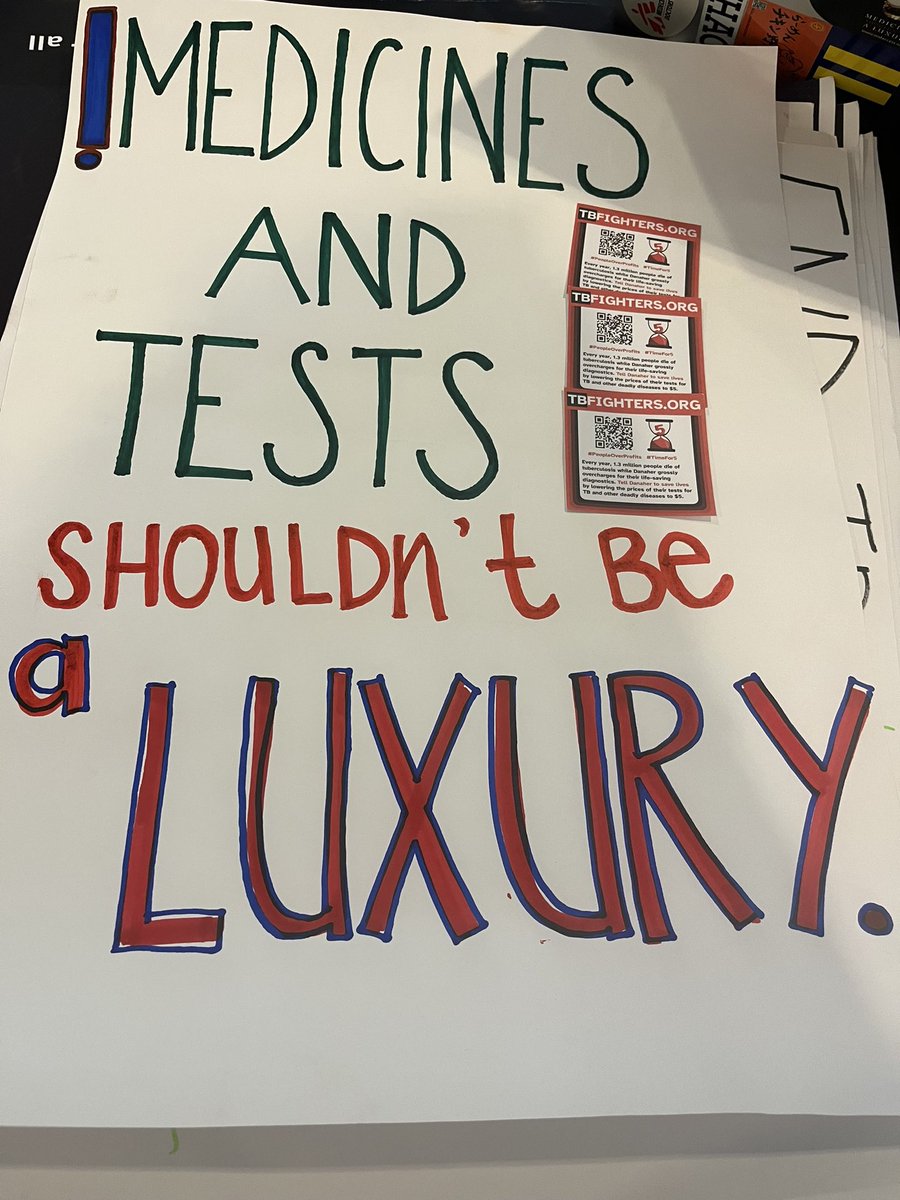 ! MEDICINES
AND
TESTS
SHOULDn't Be
a LUXURY.
TBFIGHTERS.ORG
5
#PeopleOverProfits #TimeFor5
Every year, 1.3 million people die of
tuberculosis while Danaher grossly
overcharges for their life-saving
diagnostics. Tell Danaher to save lives
TBFIGHTERS.ORG
5
#PeopleOverProfits #TimeFor5
Every year, 1.3 million people die of
tuberculosis while Danaher grossly
overcharges for their life-saving
diagnostics. Tell Danaher to save lives
by lowering the prices of their tests for
TB and other deadly diseases to $5.
TBFIGHTERS.ORG
5
#PeopleOverProfits #TimeFor5
Every year, 1.3 million people die of
tuberculosis while Danaher grossly
overcharges for their life-saving
diagnostics. Tell Danaher to save lives
by lowering the prices of their tests for
TB and other deadly diseases to $5.
all